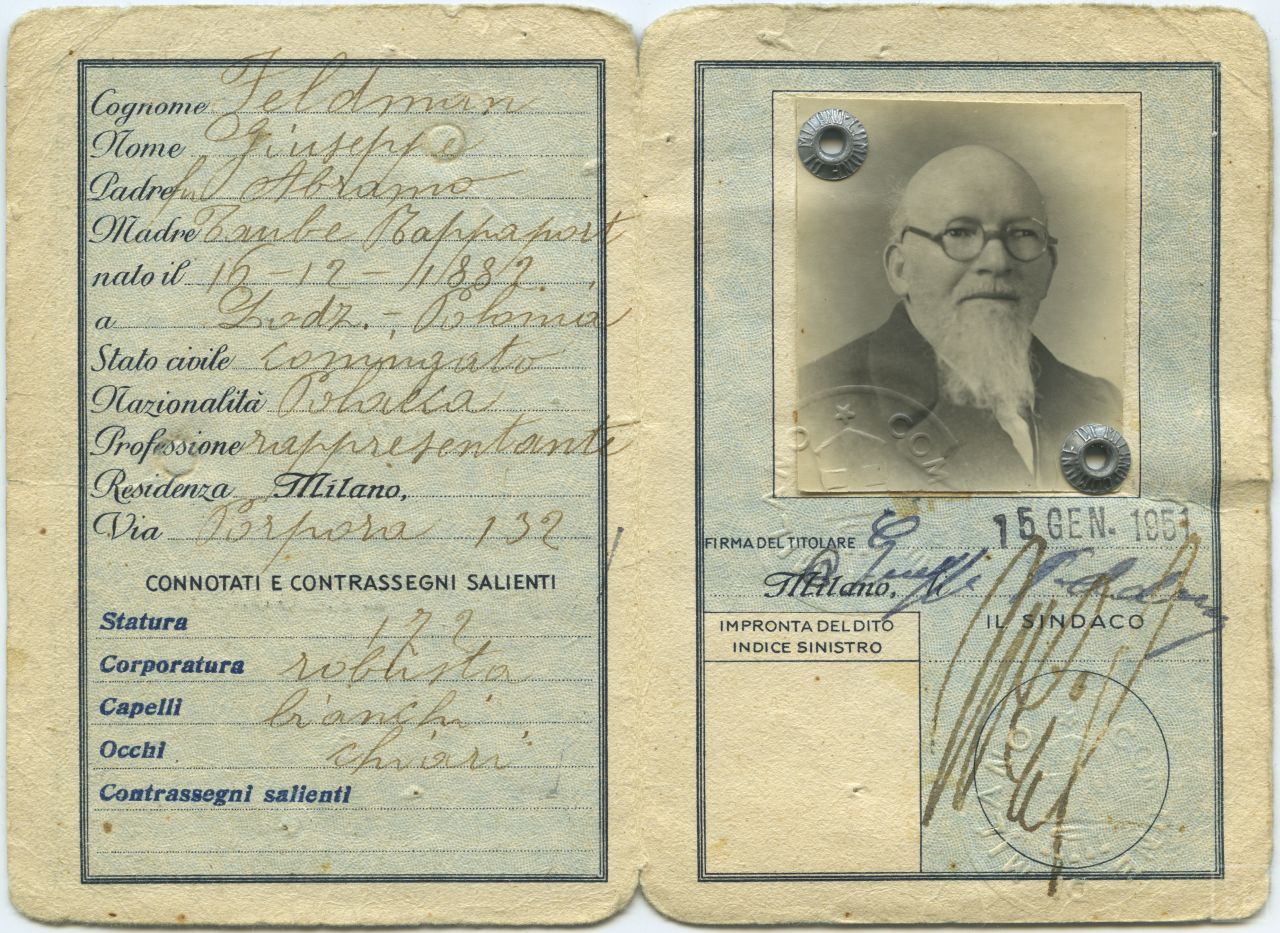 Cognome Feldman
Nome Giuseppe
Padre fu Abramo
Madre Taube Rappaport
nato il 16-12-1882.
a Lodz.- Polonia
Stato civile coniugato
Nazionalità Polacca
Professione rappresentante
Residenza Milano,
Via Porpora 132
CONNOTATI E CONTRASSEGNI SALIENTI
Statura 172
Corporatura robusta
Capelli bianchi
Occhi chiari
Contrassegni salienti
COM
15 GEN. 1951
FIRMA DEL TITOLARE Giuseppe Feldman
Milano,
IMPRONTA DEL DITO
INDICE SINISTRO
IL SINDACO